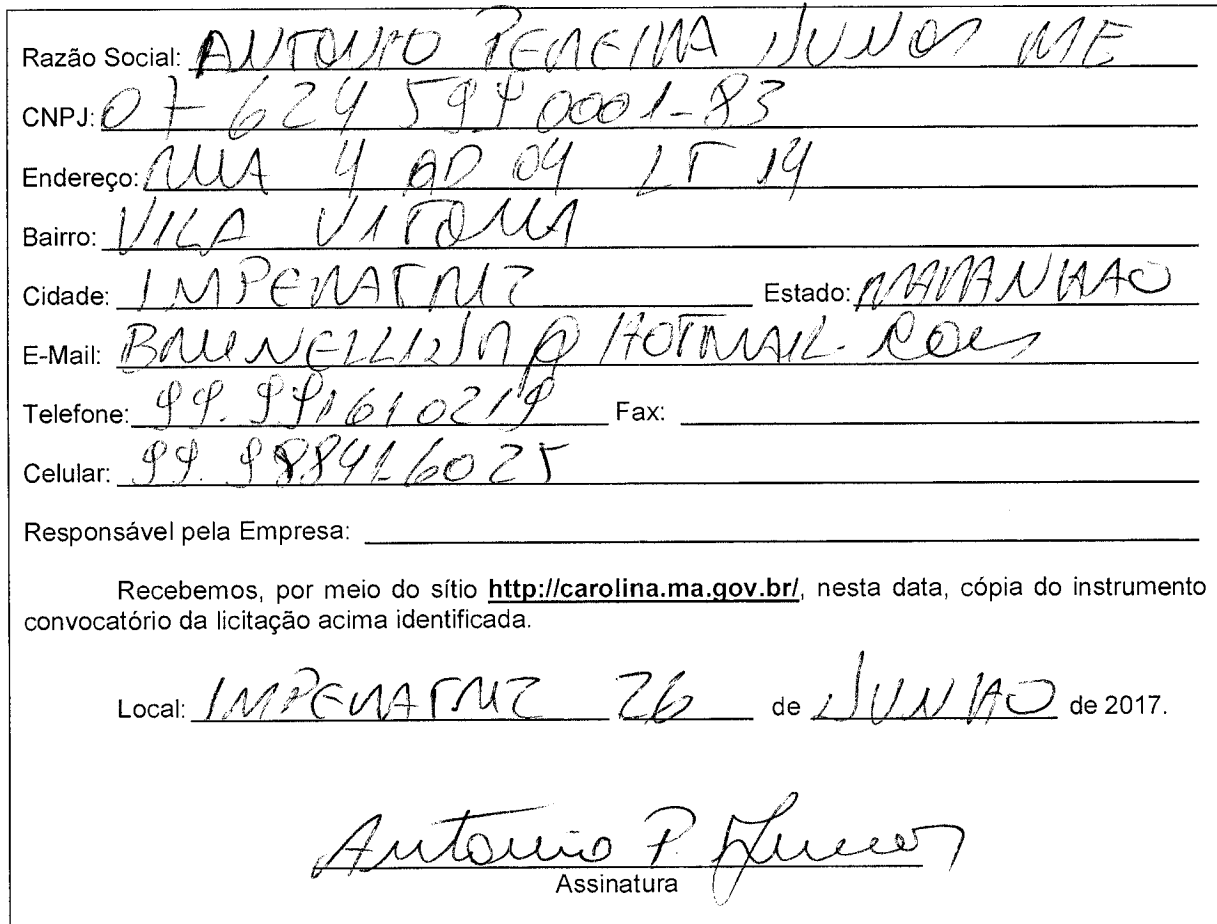 Razão Social: ANTONIO PEREIRA JUNIOR ME
CNPJ: 07 624 594 0001-83
Endereço: RUA 4 QD 04 LT 14
Bairro: VILA VITORIA
Cidade: IMPERATRIZ Estado: MARANHAO
E-Mail: BRUNELLIJR@HOTMAIL.COM
Telefone: 99. 991610219 Fax:
Celular: 99. 988416025
Responsável pela Empresa:
Recebemos, por meio do sítio http://carolina.ma.gov.br/, nesta data, cópia do instrumento
convocatório da licitação acima identificada.
Local: IMPERATRIZ 26 de JUNHO de 2017.
Antonio P. Junior
Assinatura